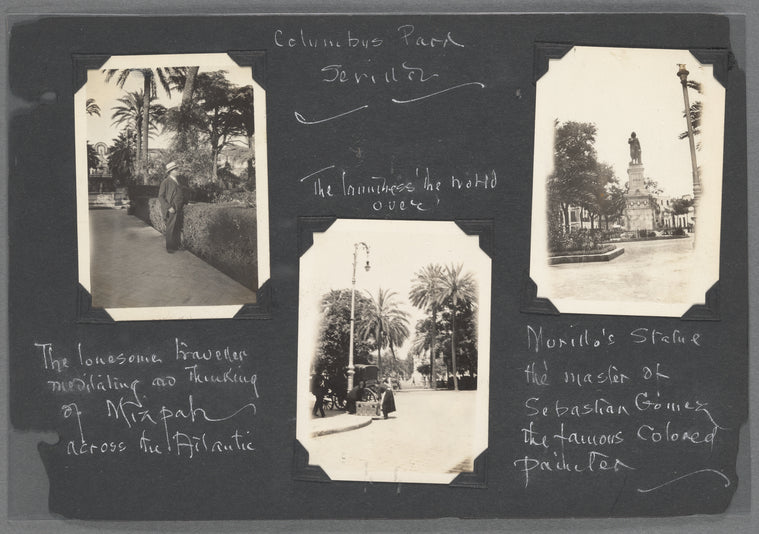 Columbus Park
Sevilla
The laundress 'the world
over'
The lonesome traveller
meditating and thinking
of Mizpah
across the Atlantic
Murillo's Statue
the master of
Sebastian Gómez
the famous Colored
painter